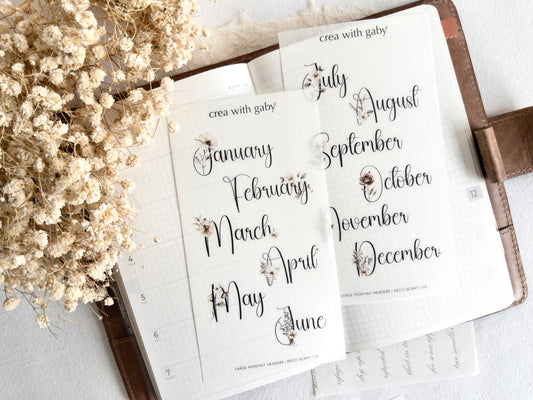 crea with gaby
January
February
March
April
May
June
LARGE MONTHLY HEADERS | DECO SCRIPT |
crea with gaby
July
August
September
October
November
December
LARGE MONTHLY HEADERS | DECO SCRIPT |
12
4
5
6
7